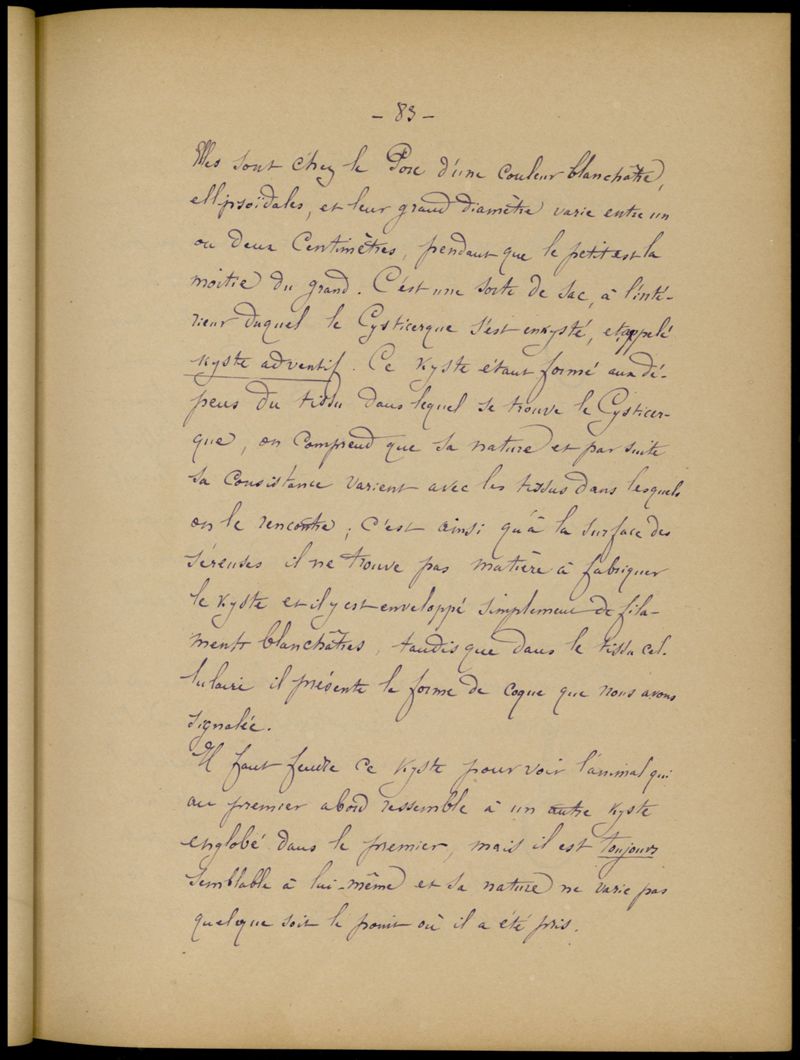 - 83 -
Elles sont chez le Porc d'une couleur blanchâtre,
ellipsoïdales, et leur grand diamètre varie entre un
ou deux Centimètres, pendant que le petit est la
moitié du grand. C'est une sorte de sac, à l'inté-
rieur duquel le Cysticerque s'est enkysté, et appelé
kyste adventif. Ce kyste étant formé aux dé-
pens du tissu dans lequel se trouve le Cysticer-
que, on comprend que sa nature et par suite
sa consistance varient avec les tissus dans lesquels
on le rencontre ; c'est ainsi qu'à la surface des
séreuses il ne trouve pas matière à fabriquer
le kyste et il y est enveloppé simplement de fila-
ments blanchâtres, tandis que dans le tissu cel-
lulaire il présente la forme de coque que nous avons
signalée.
Il faut fendre ce kyste pour voir l'animal qui
au premier abord ressemble à un autre kyste
englobé dans le premier, mais il est toujours
semblable à lui-même et sa nature ne varie pas
quelque soit le point où il a été pris.